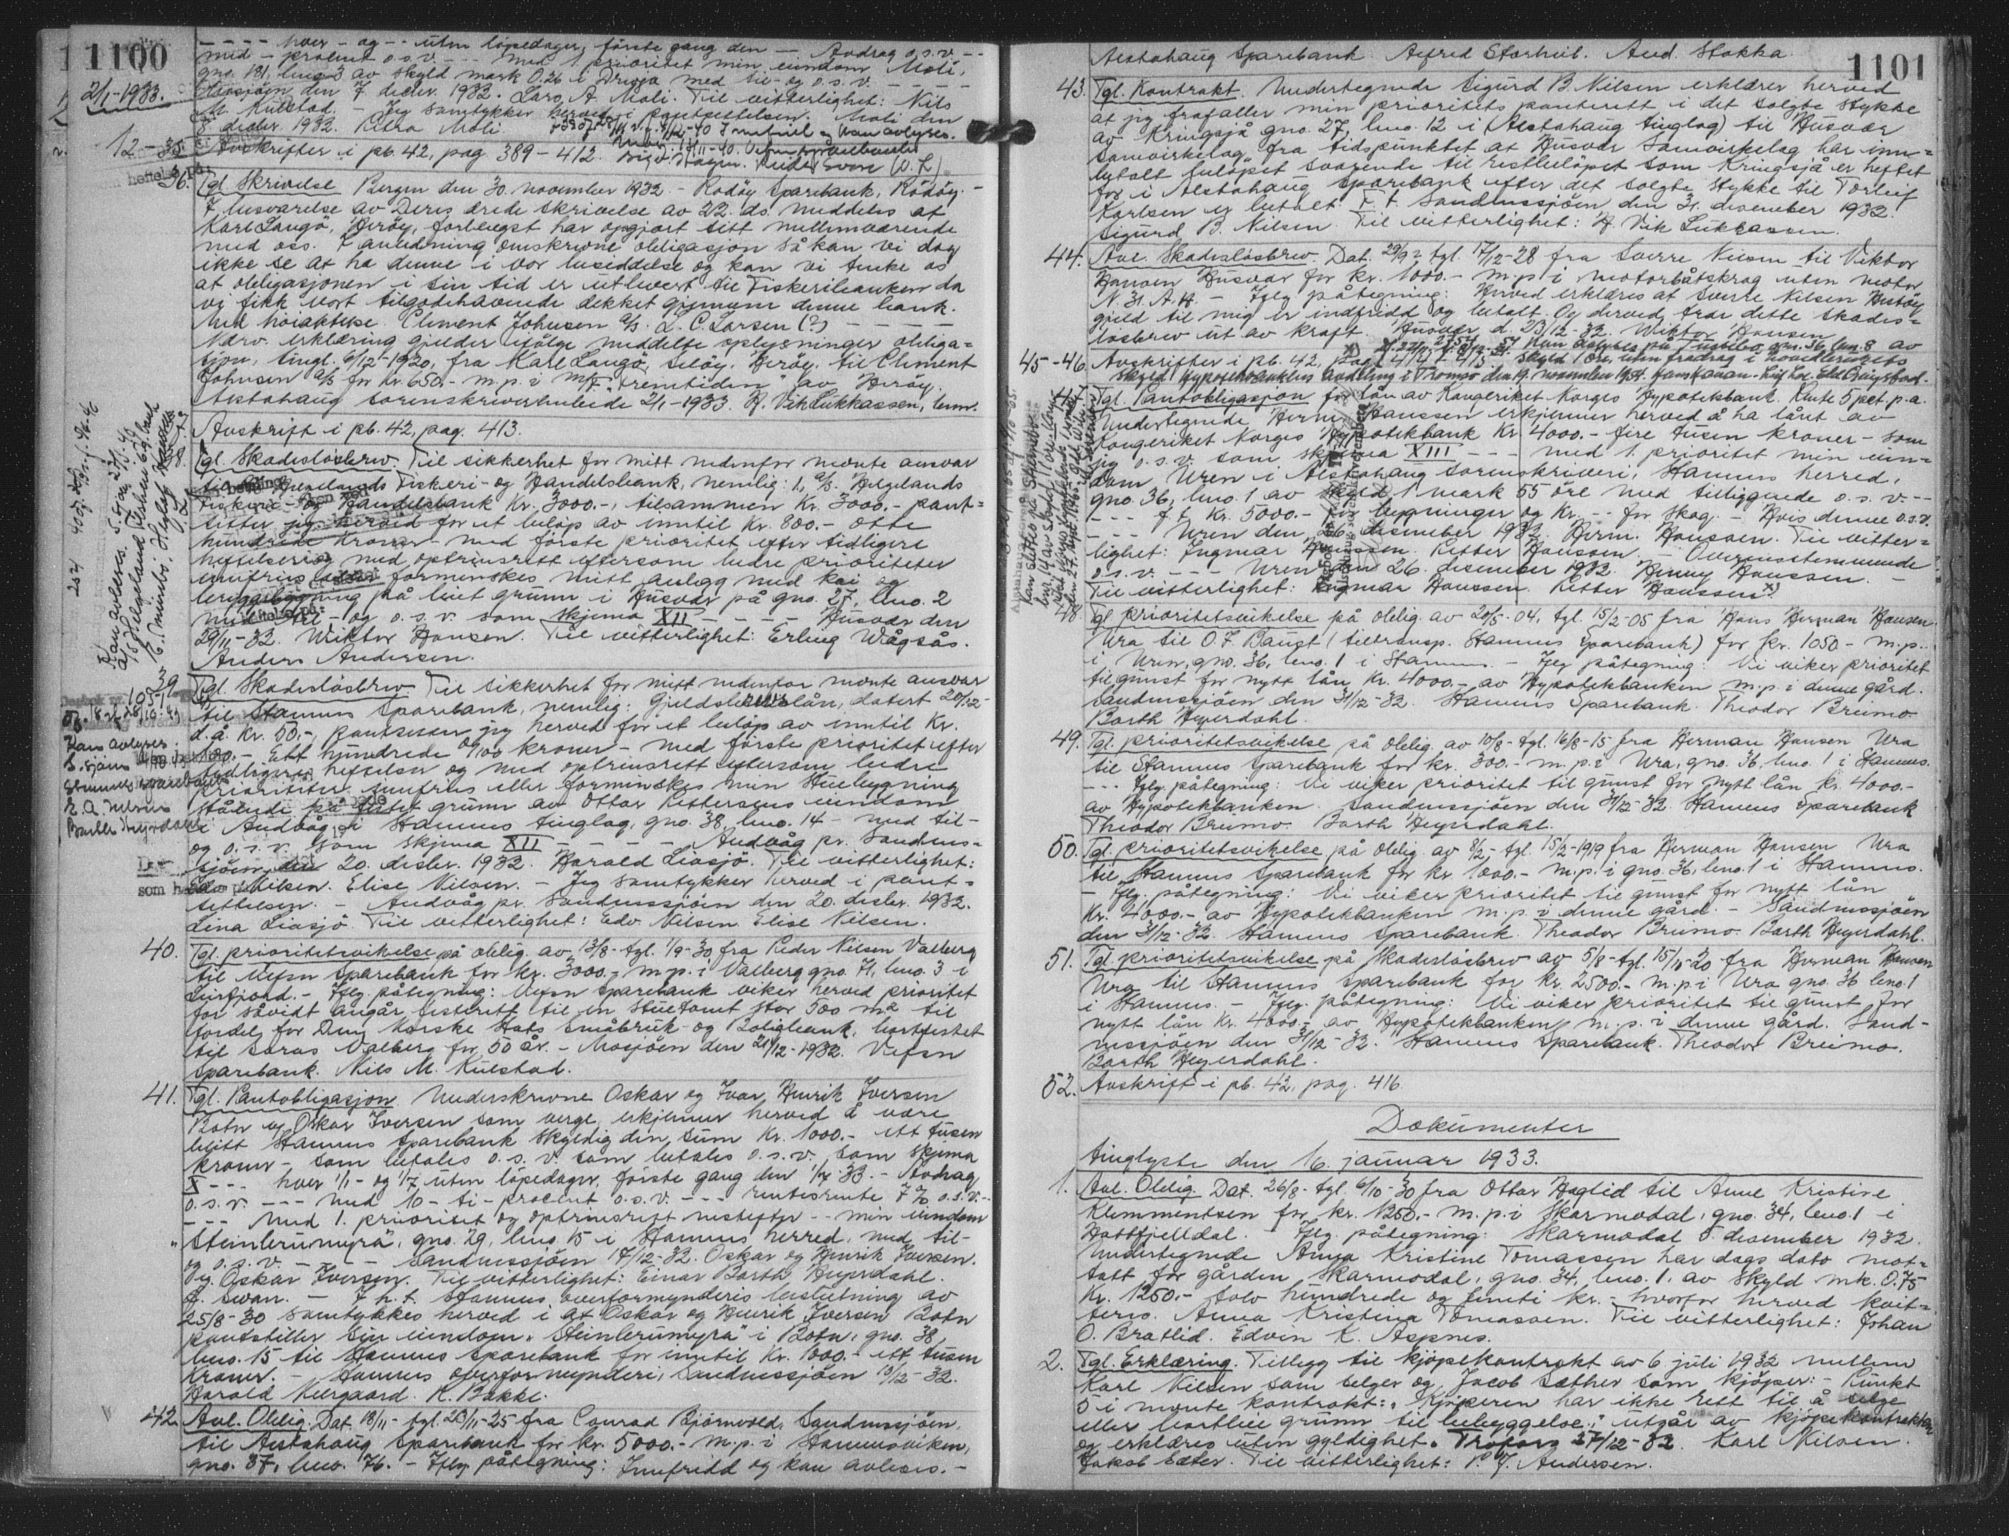 1100
2/1-1933.
---- hver - og -- uten løpedager, første gang den -- Avdrag o.s.v --
med - procent o.s.v. --- med 1 prioritet min eiendom Moli,
gno. 181, bno. 3 av skyld mark 0.26 i Drevja med til- og o.s.v. ---
den 7 decbr. 1932. Lars A. Moli. Til vitterlighet: Nils
M. Kulstad. - Jeg samtykker herved i pantsettelsen. Moli den
8 decbr. 1932. Petra Moli
12-35 Avskrifter i pb. 42, pag 389-412.
36. Tgl. Skrivelse Bergen den 30. november 1932. - Rødøy Sparebank, Rødøy. -
I besvarelse av Deres ærede skrivelse av 22. ds. meddeles at
Karl Langø, Herøy, forlengst har opgjort sitt mellemværende
med oss. I anledning omskrevne obligasjon så kan vi dog
ikke se at ha denne i vor besiddelse og kan vi tenke os
at obligasjonen i sin tid er utlevert til Fiskeribanken da
vi fikk vort tilgodehavende dekket gjennem denne bank.
Med høiaktelse. Clement Johnsen a/s. L. C. Larsen (?) ----
Nærv. erklæring gjelder ifølge meddelte oplysninger obliga-
sjon, tingl. 6/12-1920, fra Karl Langø, Seløy, Herøy, til Clement
Johnsen a/s for kr. 650.- m.p. i m/k "Fremtiden" av Herøy.
Alstahaug sorenskriverembede 2/1-1933. H. Vik Lukkassen, bem.
Avskrift i pb. 42, pag. 413.
38. Tgl. Skadesløsbrev. Til sikkerhet for mitt nedenfor nevnte ansvar
til Helgelands Fiskeri- og Handelsbank, nemlig: 1, a/s. Helgelands
Fiskeri- og Handelsbank Kr. 3000.-, tilsammen Kr. 3000.- pant-
setter jeg herved for et beløp av inntil Kr. 800.- otte
hundrede kroner - med første prioritet efter tidligere
heftelser og med optrinsrett eftersom bedre prioriteter
innfries eller forminskes, mitt anlegg med kai og
bryggebygning på leiet grunn i Husvær på gno. 27, bno. 2
med til- og o.s.v. som skjema XII ---- Husvær den
29/11-32. Wiktor Hansen. Til vitterlighet: Erling Vågsås.
Anders Andersen.
39. Tgl. Skadesløsbrev. Til sikkerhet for mitt nedenfor nevnte ansvar
til Stamnes Sparebank, nemlig: Gjeldsbrevslån, datert 20/12-
d.å. kr. 50.-, pantsetter jeg herved for et beløp av inntil Kr.
100.- Ett hundrede 00/100 kroner - med første prioritet efter
tidligere heftelser og med optrinsrett eftersom bedre
prioriteter innfries eller forminskes min Huebygning
stående på festet grunn av Ottar Pettersens eiendom
i Andvåg i Stamnes tinglag, gno. 38, bno. 14 - med til-
og o.s.v. som skjema XII ---- Andvåg pr. Sandnes-
sjøen, den 20. decbr. 1932. Harald Liasjø. Til vitterlighet:
Edv. Nilsen. Elise Nilsen. - Jeg samtykker herved i pant-
settelsen. - Andvåg pr. Sandnessjøen den 20. decbr. 1932.
Lina Liasjø. Til vitterlighet: Edv. Nilsen Elise Nilsen.
40. Tgl. prioritetsvikelse på oblig. av 13/8- tgl. 1/9-30 fra Peder Nilsen Valberg
til Vefsn Sparebank for kr. 3000.- m.p. i Valberg gno. 71, bno. 3 i
Leirfjord. - Iflg. påtegning: Vefsn Sparebank viker herved prioritet
for såvidt angår festerett til en Huetomt stor 500 m² til
fordel for Den Norske Stats Småbruk- og Boligbank, bortfestet
til Saras Valberg for 50 år. - Mosjøen den 21/12-1932. Vefsn
Sparebank. Nils M. Kulstad.
41. Tgl. Pantobligasjon Underskrevne Oskar og Ivar Henrik Iversen
Botn og Oskar Iversen som verge, erkjenner herved å være
blitt Stamnes Sparebank skyldig den sum Kr. 1000.- ett tusen
kroner - som betales o.s.v. som betales o.s.v. som skjema
X --- hver 1/1- og 1/7 uten løpedager, første gang den 1/7-33. - Avdrag
o.s.v. --- med 10 - ti - procent o.s.v. --- rentesrente 7% o.s.v. --
--- Med 1. prioritet og optrinsrett nestefter -- min eiendom
"Steinlerumyra", gno. 29, bno. 15 i Stamnes herred, med til-
og o.s.v. ---- Sandnessjøen 17/12-32. Oskar og Henrik Iversen.
Og. Oskar Iversen. Til vitterlighet: Einar Barth Heyerdahl.
J. Swan. - I h.t. Stamnes overformynderis beslutning av
25/8-30 samtykkes herved i at Oskar og Henrik Iversen Botn
pantstiller sin eiendom "Steinlerumyra" i Botn, gno. 38,
bno. 15 til Stamnes Sparebank for inntil Kr. 1000.- ett tusen
kroner. - Stamnes overformynderi, Sandnessjøen 13/12-32.
Harald Neergaard. K. Bakke.
42. Avl. Oblig. Dat. 18/11- tgl. 23/11-25 fra Conrad Bjørnvold, Sandnessjøen
til Alstahaug Sparebank for kr. 5000.- m.p. i Stamnesviken,
gno. 37, bno. 76. - Iflg. påtegning: Innfridd og kan avleses. -
1101
Alstahaug Sparebank Alfred Storheil. And. Stokka
43. Tgl. Kontrakt. Undertegnede Sigurd B. Nilsen erklærer herved
at jeg frafaller min prioritets panterett i det solgte stykke
av Kringsjå gno. 27, bno. 12 i (Alstahaug tinglag) til Husvær
Samvirkelag fra tidspunktet at Husvær Samvirkelag har inn-
betalt beløpet svarende til restbeløpet som Kringsjå er heftet
for i Alstahaug Sparebank efter det solgte stykke til Torleif
Karlsen er betalt. F.t. Sandnessjøen den 31. desember 1932.
Sigurd B. Nilsen. Til vitterlighet: H. Vik Lukkassen.
44. Avl. Skadesløsbrev. Dat. 29/9- tgl. 17/12-28 fra Sverre Nilsen til Viktor
Hansen Husvær for kr. 1000.- m.p. i motorbåtskrog uten motor
N. 31. A.H. - Iflg. påtegning: Herved erklæres at Sverre Nilsen Husøy
gjeld til mig er innfridd og betalt. Og dermed trær dette skades-
løsbrev ut av kraft. Husvær d. 23/12-32. Wiktor Hansen.
45-46. Avskrifter i pb. 42, pag. 414-415.
Tgl. Pantobligasjon for lån av Kongeriket Norges Hypotekbank. Rente 5 pct p.a.
Undertegnede Herm. Hanssen erkjenner herved å ha lånt av
Kongeriket Norges Hypotekbank Kr. 4000.- fire tusen kroner - som
jeg o.s.v. som skjema XIII --- med 1. prioritet min eien-
dom Uren i Alstahaug sorenskriveri, Stamnes herred,
gno. 36, bno. 1 av skyld 1 mark 55 øre med tilliggende o.s.v. --
--- f.t. Kr. 5000.- for bygninger og kr. -- for skog. - Hvis denne o.s.v.
--- Uren den 26 desember 1932. Herm. Hanssen. Til vitter-
lighet: Ingmar Hanssen. Petter Hanssen. - Overensstemmende
o.s.v. --- Uren den 26. desember 1932. Henny Hanssen. -
Til vitterlighet: Ingmar Hanssen. Petter Hanssen.
48. Tgl. prioritetsvikelse på oblig. av 20/5-04, tgl. 15/2-05 fra Hans Herman Hansen
Ura til O.F. Baugt (til transp. Stamnes Sparebank) for kr. 1050- m.p.
i Uren, gno. 36, bno. 1 i Stamnes. - Iflg. påtegning: Vi viker prioritet
til gunst for nytt lån Kr. 4000.- av Hypotekbanken m.p. i denne gård.
Sandnessjøen den 31/12-32. Stamnes Sparebank. Theodor Breimo.
Barth Heyerdahl.
49. Tgl. prioritetsvikelse på oblig. av 10/8- tgl. 16/8-15 fra Herman Hansen Ura
til Stamnes Sparebank for kr. 300.- m.p. i Ura, gno. 36, bno. 1 i Stamnes.
--- Iflg. påtegning: Vi viker prioritet til gunst for nytt lån kr. 4000.-
av Hypotekbanken. Sandnessjøen den 31/12-32. Stamnes Sparebank
Theodor Breimo. Barth Heyerdahl.
50. Tgl. prioritetsvikelse på oblig. av 8/2- tgl. 15/2-1919 fra Herman Hansen Ura
til Stamnes Sparebank for kr. 1000.- m.p. i gno. 36, bno. 1 i Stamnes.
- Iflg. påtegning: Vi viker prioritet til gunst for nytt lån
Kr. 4000.- av Hypotekbanken m.p. i denne gård. - Sandnessjøen
den 31/12-32. Stamnes Sparebank. Theodor Breimo. Barth Heyerdahl.
51. Tgl. prioritetsvikelse på Skadesløsbrev av 5/8- tgl. 15/10-20 fra Herman Hansen
Ura til Stamnes Sparebank for kr. 2500.- m.p. i Ura gno. 36 bno. 1
i Stamnes. - Iflg. påtegning: Vi viker prioritet til gunst for
nytt lån kr. 4000.- av Hypotekbanken m.p. i denne gård. Sand-
nessjøen den 31/12-32. Stamnes Sparebank. Theodor Breimo.
Barth Heyerdahl.
52. Avskrift i pb. 42, pag. 416.
Dokumenter
tinglyste den 16. januar 1933.
1. Avl. Oblig. Dat. 26/8- tgl. 6/10-30 fra Ottar Haglid til Anne Kristine
Klemmentsen for kr. 1250.- m.p. i Skarmodal, gno. 34, bno. 1 i
Hattfjelldal. Iflg. påtegning: Skarmodal 8. desember 1932.
Undertegnede Anna Kristine Tomassen har dags dato mot-
tatt for gården Skarmodal, gno. 34, bno. 1, av skyld mk. 0.75
Kr. 1250.- tolv hundrede og femti kr. - hvorfor herved kvit-
teres. Anna Kristina Tomassen. Til vitterlighet: Johan
O. Bratlid. Edvin K. Aspnes.
2. Tgl. Erklæring. Tillegg til kjøpekontrakt av 6 juli 1932 mellem
Karl Nilsen som selger og Jacob Sæther som kjøper: - Punkt
5 i nevnte kontrakt: "Kjøperen har ikke rett til å selge
eller bortleie grunn til bebyggelse," utgår av kjøpekontrakten
og erklæres uten gyldighet. Trofors 27/12-32. Karl Nilsen.
Jakob Sæter. Til vitterlighet: P. J. Andersen.